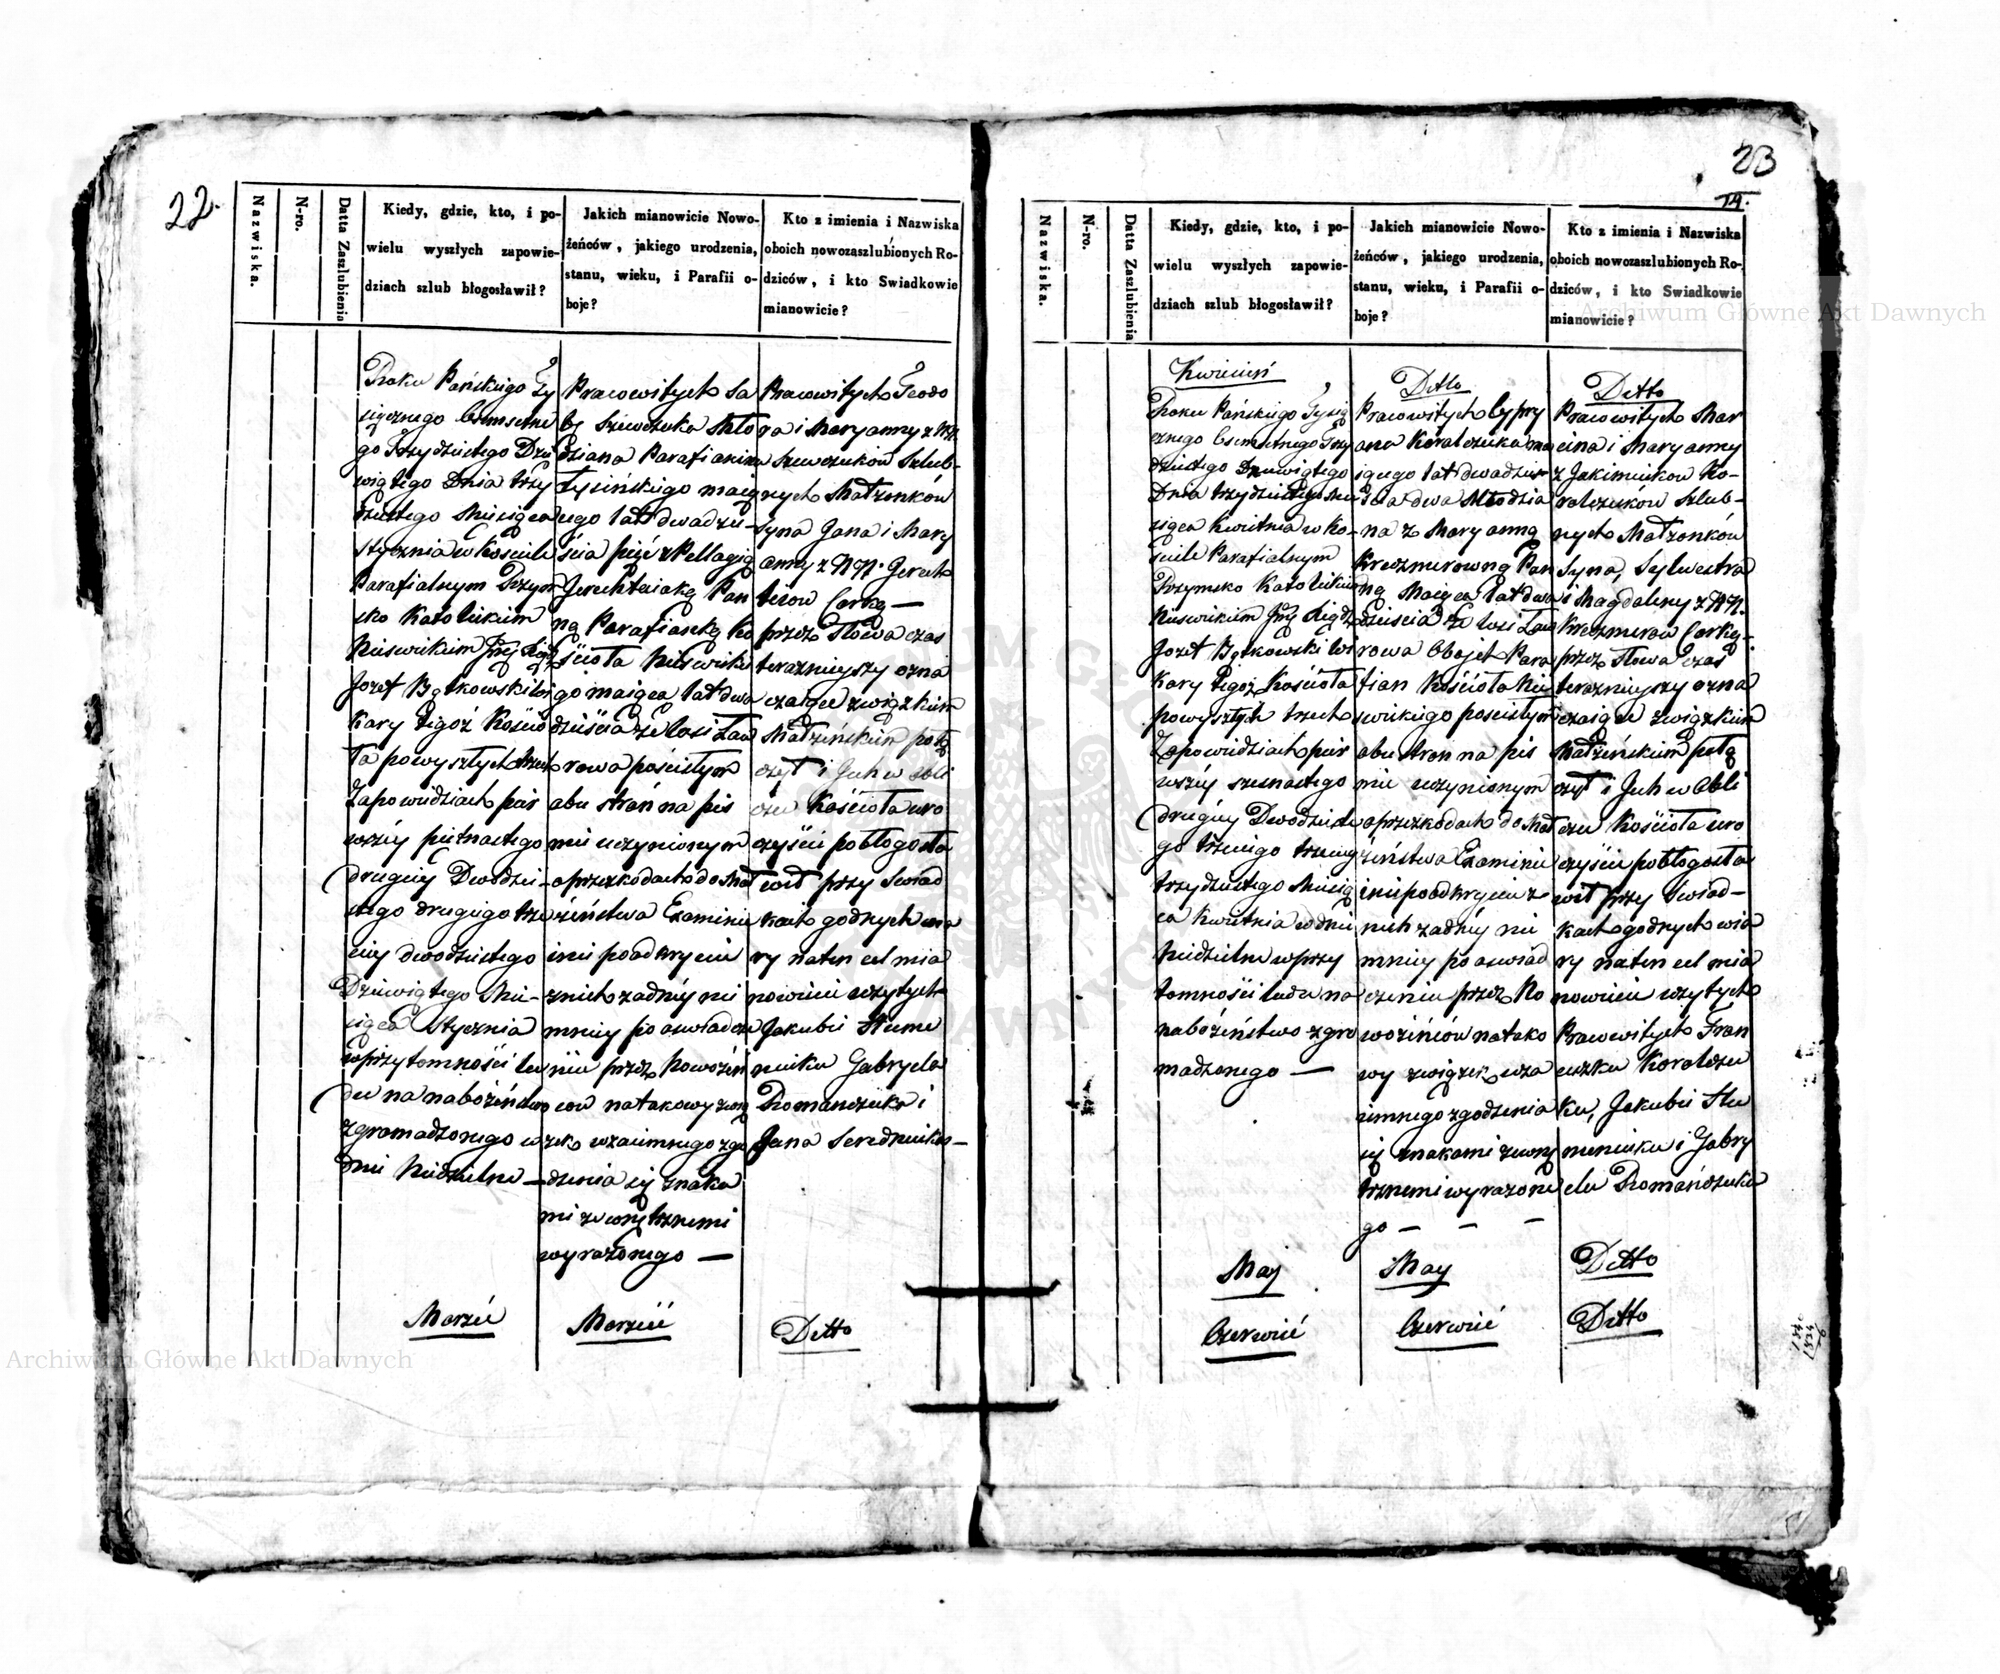 22.
Nazwiska.
N-ro.
Datta Zaszlubienia
Kiedy, gdzie, kto, i po-
wielu wyszłych zapowie-
dziach szlub błogosławił?
Jakich mianowicie Nowo-
żeńców, jakiego urodzenia,
stanu, wieku, i Parafii o-
boje?
Kto z imienia i Nazwiska
oboich nowozaszlubionych Ro-
dziców, i kto Swiadkowie
mianowicie?
Roku Pańskiego Ty
siącznego Osmsetne
go Trzydziestego Dzie
wiątego Dnia trzy
dziestego Miesiąca
Stycznia w Kosciele
Parafialnym Rzym
sko Katolickim
Jozef Bątkowski Wi
kary tegoż Kościo
ła powyszłych trzech
Zapowiedziach pier
wszéy pietnastego
drugiéy Dwódzie-
stego drugiego trze
ciéy dwódziestego
Dziewiątego Mie-
siąca Stycznia
w przytomności lu
du na nabożeństwo
zgromadzonego w
dni Niedzielne
Marzéc
Pracowitych Sa
wę Szewczuka Mło
dziana Parafianina
cego lat dwadzie-
ścia pięć z Pellagią
ną Parafianką Ko
ścioła
go maiąca lat dwa
dzieścia
rowa poscisłym
abu strón na pis
mie uczynionym
o przeszkodach do Mał
żeństwa Examinie
inie poodkryciu
z nich zadnéy nie
mniey po oswiadcze
niu przez Nowożeń
ców na takowy zwią
zek wzaiemnego zgo
dzenia się znaka
mi zewnętrznemi
wyrażonego —
Marzéc
Pracowitych Teodo
ra i Maryanny z NN.
Szewczuków Szlub-
nych Małżonków
Syna Jana i Mary
anny z NN. Jerech
Corkę —
przez słowa czas
teraznieyszy ozna
czaiące związkiem
Małżeńskim połą
czył i Ich w obli
czu Kościoła uro
czyście pobłogosła
wił przy Swiad
kach godnych wia
ry na ten cel mia
nowicie wzytych
Jakubie Hume
niuku Gabryelu
Romanczuku i
Jana Seredniuka —
Ditto
23
Nazwiska.
N-ro.
Datta Zaszlubienia
Kiedy, gdzie, kto, i po-
wielu wyszłych zapowie-
dziach szlub błogosławił?
Jakich mianowicie Nowo-
żeńców, jakiego urodzenia,
stanu, wieku, i Parafii o-
boje?
Kto z imienia i Nazwiska
oboich nowozaszlubionych Ro-
dziców, i kto Swiadkowie
mianowicie?
Kwiecień
Roku Pańskiego Tysią
cznego Osmsetnego Trzy
dziestego Dziewiątego
Dnia trzydziestego Mie
siąca Kwietnia w Ko-
ściele Parafialnym
Rzymsko Katolickim
Jozef Bątkowski Wi
kary tegoż Kościoła
powyszłych trzech
Zapowiedziach pier
wszéy szesnastego
drugiéy Dwódzieste
go trzeciego trzeciéy
trzydziestego Miesią
ca Kwietnia w dnie
Niedzielne w przy
tomności ludu na
nabożeństwo zgro
madzonego —
Maj
Czerwiéc
Ditto
Pracowitych Cypry
ana Koralczuka ma
iącego lat dwadzie-
ścia dwa Młodzia
na z Maryanną
Kreczmerowną Pan
ną Maiąca lat dwa
dzieścia
rowa Oboje Para
fian Kościoła Nie
swickiego poscisłym
abu stron na pis
mie uczynionym
o przeszkodach do Mał
żeństwa Examinie
inie poodkryciu z
nich zadnéy nie
mniey po oswiad
czeniu przez No
wożeńców na tako
wy związek wza
iemnego zgodzenia
się znakami zewnę
trznemi wyrażone
go — — —
May
Czerwiéc
Ditto
Pracowitych Mar
cina i Maryanny
z Jakimiuków Ko-
ralczuków Szlub-
nych Małżonków
Syna, Sylwestra
i Magdaleny z NN.
Kreczmerów Corkę-
przez słowa czas
teraznieyszy ozna
czaiące związkiem
Małżeńskim połą
czył i Ich w Obli
czu Kościoła uro
czyście pobłogosła
wił przy Swiad-
kach godnych wia
ry na ten cel mia
nowicie wzytych
Pracowitych Fran
ciszku Koralczu
ku, Jakubie Hu
meniuku i Gabry
elu Romańczuku
Ditto
Ditto
Archiwum Główne Akt Dawnych
Archiwum Główne Akt Dawnych